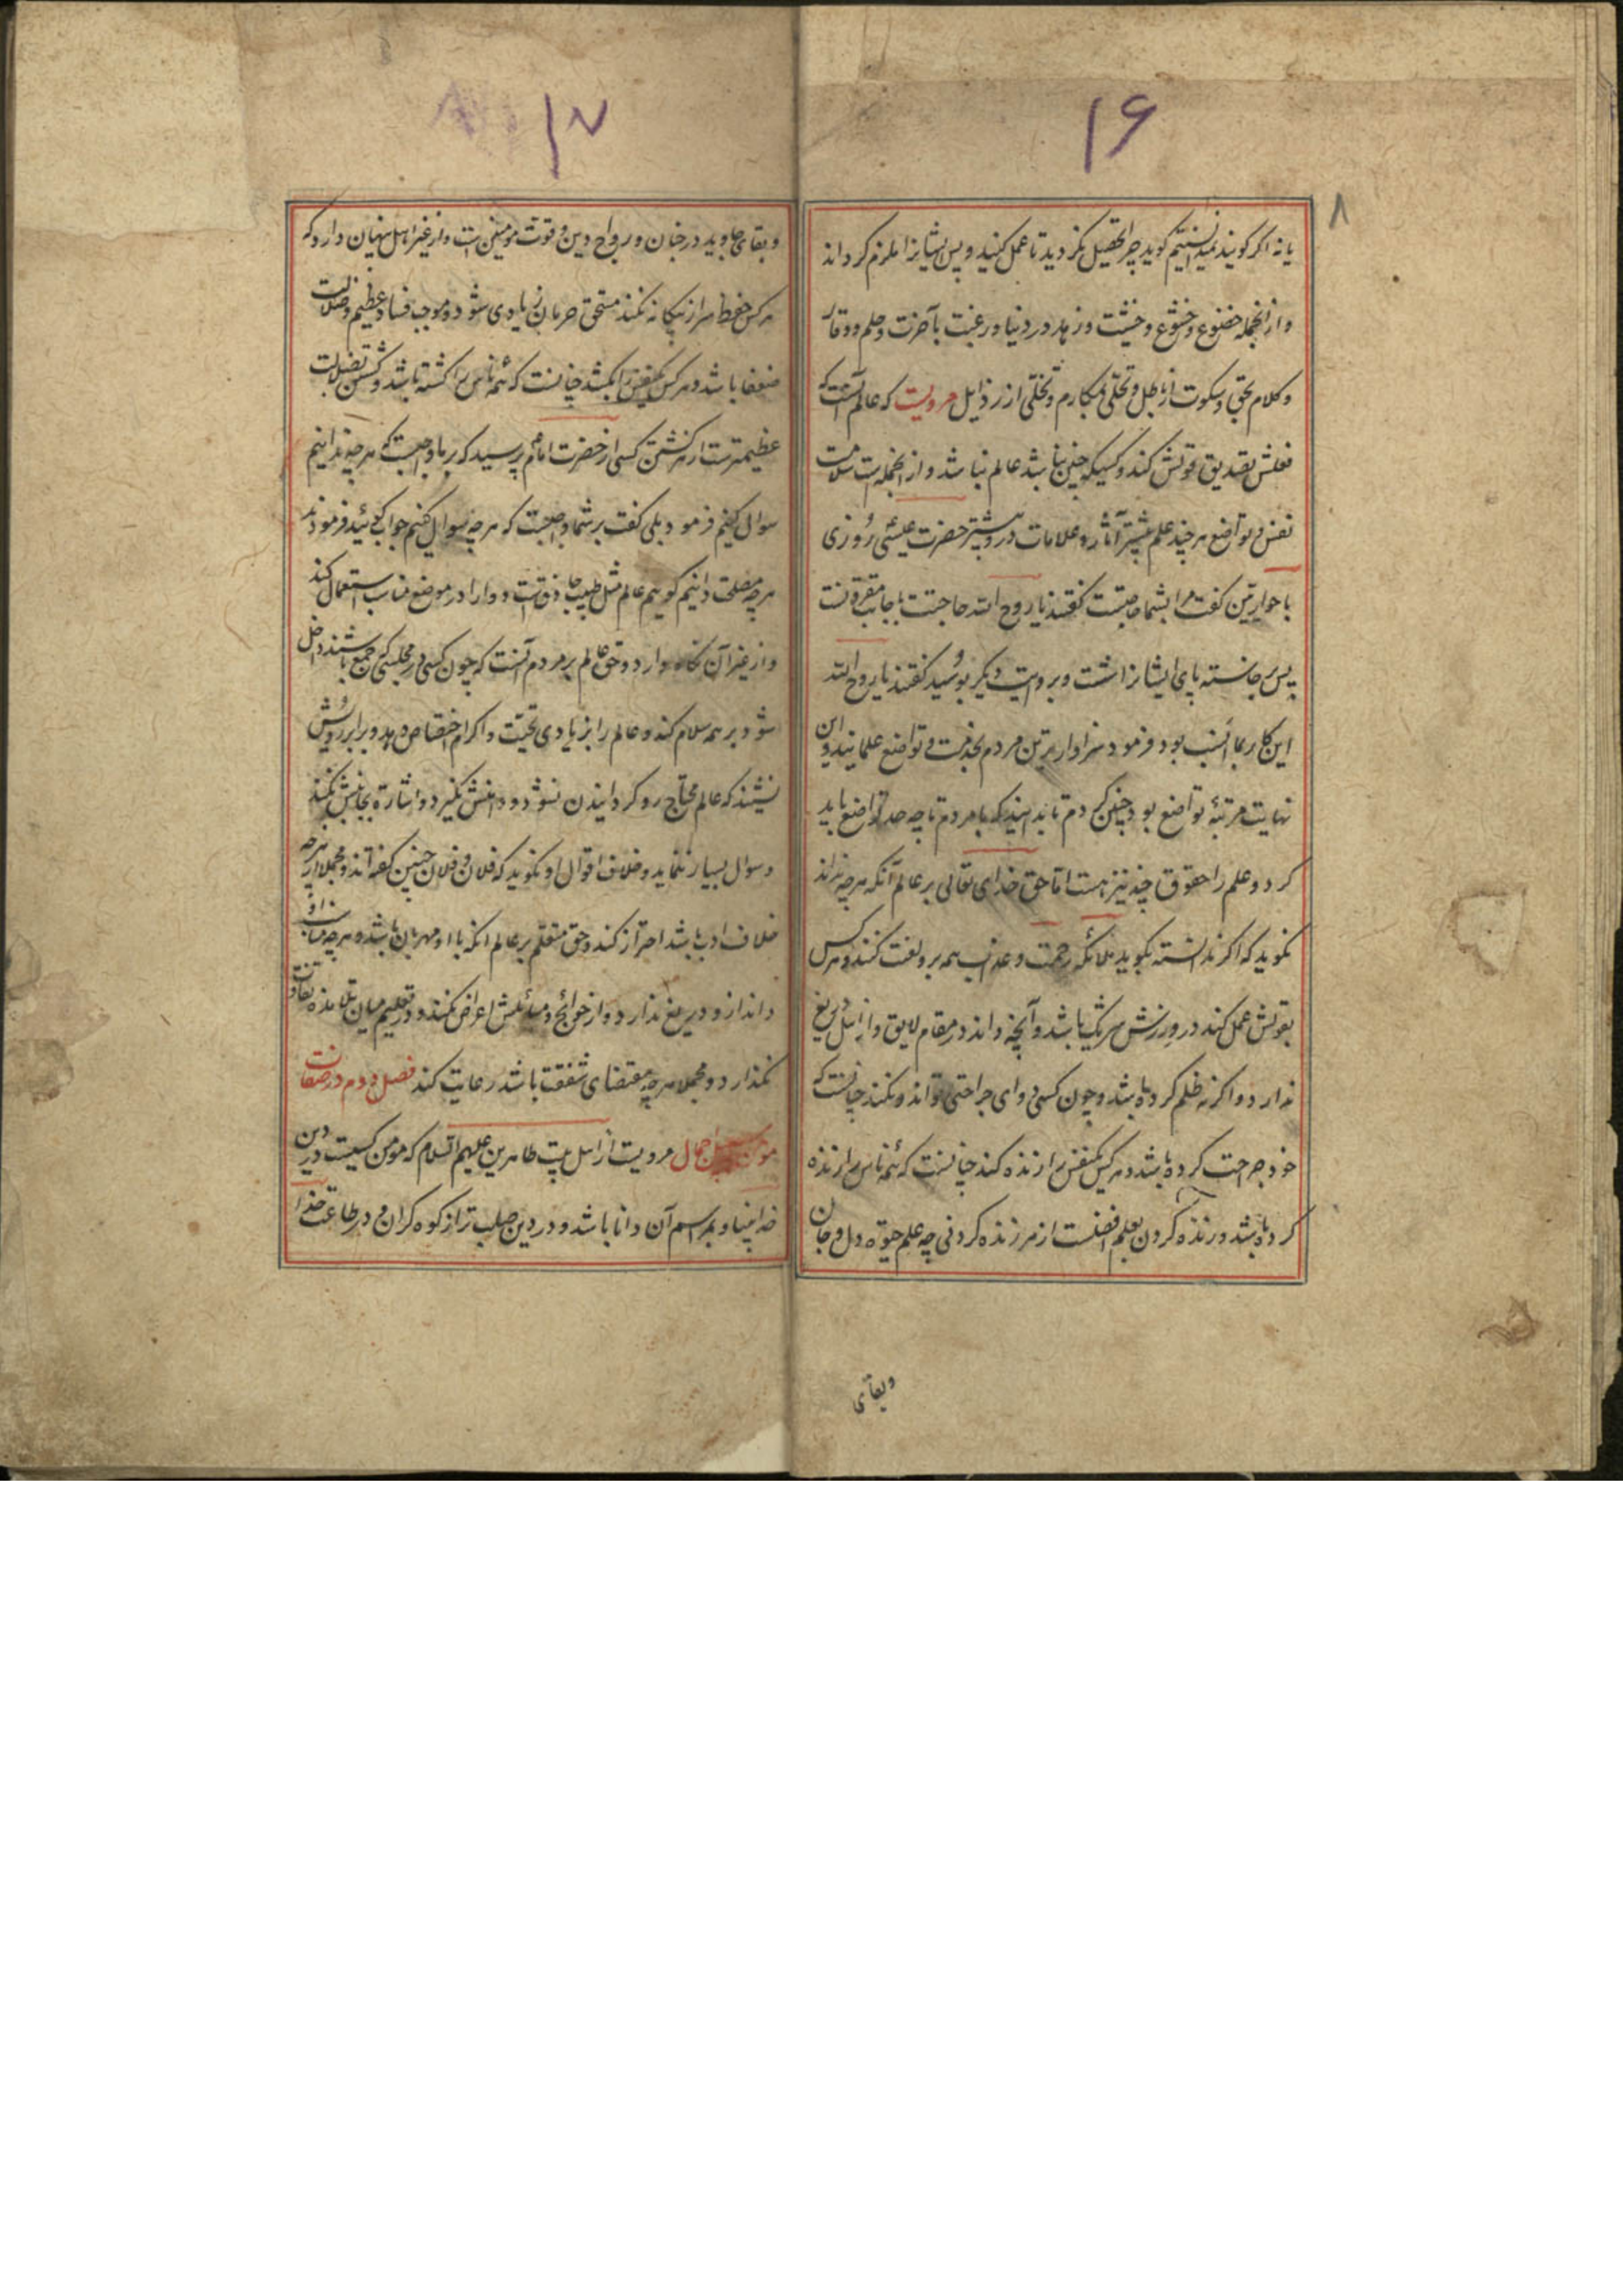 ۱۶
۸
یا نه اکر کویند نمیدانستیم کوید چرا تحصیل نکردید تا عمل کنید و پس ایشانرا ملزم کرداند
و از انجمله خضوع و خشوع و خشیت و زهد در دنیا و رغبت بآخرت و حلم و وقار
و کلام بحق و سکوت از باطل و تحلّی بمکارم و تخلّی از رذایل مرویست که عالم آنست که
فعلش تصدیق قولش کند و کسیکه چنین نباشد عالم نباشد و از انجمله است سلامت
نفس و تواضع هر چند علم بیشتر آثار و علامات درو بیشتر حضرت عیسی روزی
با حواریین کفت مرا بشما حاجتیست کفتند یا روح الله حاجتت باجابت مقرونست
پس برخاسته پای ایشانرا شست و بروایت دیکر بوسید کفتند یا روح الله
این کار بما انسب بود فرمود سزاوارترین مردم بخدمت و تواضع علمایند و این
نهایت مرتبهٔ تواضع بود چنین کردم تا بدانید که با مردم تا چه حد تواضع باید
کرد و علم را حقوق چند نیز هست اما حق خدای تعالی بر عالم آنکه هر چه نداند
نکوید که اکر ندانسته بکوید ملائکه رحمت و عذاب همه برو لعنت کنند و هر کس
بقولش عمل کند در وزرش شریک باشد و آنچه داند در مقام لایق و از اهل دریغ
ندارد و اکر نه ظلم کرده باشد و چون کسی دوای جراحتی تواند و نکند چنانست که
خود جراحت کرده باشد و هر کس یکنفس را زنده کند چنانست که همهٔ ناس را زنده
کرده باشد و زنده کردن بعلم افضلست از هر زنده کردنی چه علم حیوة دل و جان
وبقای
۱۷
و بقای جاوید در جنان و رواج دین و قوت مومنین است و از غیر اهل پنهان دارد که
هر کس حفظ سر از بیکانه نکند مستحق حرمان زیادی شود و موجب فساد عظیم و ضلالت
ضعفا باشد و هر کس یکنفس را بکشد چنانست که همهٔ ناس را کشته باشد و کشتن بضلالت
عظیمترست از هر کشتن کسی از حضرت امام پرسید که بر ما واجبست که هر چه ندانیم
سوال کنیم فرمود بلی کفت بر شما واجبست که هر چه سوال کنیم جواب کوئید فرمودند
هر چه مصلحت دانیم کوییم عالم مثل طبیب حاذقست دوا را در موضع مناسب استعمال کند
و از غیر آن نکاه دارد و حق عالم بر مردم آنست که چون کسی در مجلسی که جمع باشند داخل
شود بر همه سلام کند و عالم را بزیادی تحیّت و اکرام اختصاص دهد و برابر رویش
نشیند که عالم محتاج رو کردانیدن نشود و دامنش نکیرد و اشاره بجانبش نکند
و سوال بسیار ننماید و خلاف اقوال او نکوید که فلان و فلان چنین کفته‌اند و مجملا از هر چه
خلاف ادب باشد احتراز کند و حق متعلم بر عالم آنکه با او مهربان باشد و هر چه مناسب او
داند ازو دریغ ندارد و از حوائج و مسائلش اعراض نکند و در تعلیم میان تلامذه تفاوت
نکذارد و مجملا هر چه مقتضای شفقت باشد رعایت کند فصل دوم در صفات
مومن اجمال مرویست از اهل بیت طاهرین علیهم السلام که مومن کسیست که در دین
خدا بینا و بمراسم آن دانا باشد و در دین صلب تر از کوه کران و در طاعت خدا